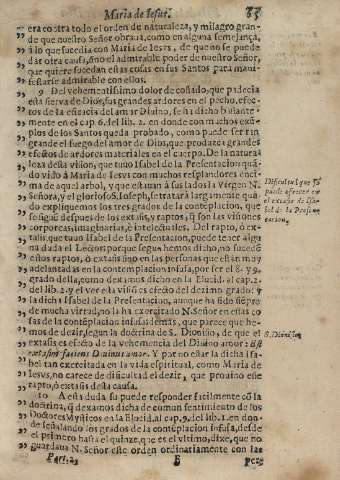 Maria de Iesus. 85
era cõtra todo el orden de naturaleza, y milagro gran-
de que nuestro Señor obraua, como en alguna semejança,
a lo que sucedia con Maria de Iesvs, de que no se puede
dar otra causa, sino el admirable poder de nuestro Señor,
que quiere sucedan estas cosas en sus Santos para mani-
festarse admirable con ellos.
9 Del vehementissimo dolor de costado, que padecia
esta sierua de Dios, sus grandes ardores en el pecho, efec-
tos de la eficacia del amor Diuino, se ha dicho bastante-
mente en el cap. 6. del lib. 2. en donde con muchos exẽ-
plos de los Santos queda probado, como puede ser tan
grande el fuego del amor de Dios, que produzca grandes
efectos de ardores materiales en el cuerpo. De la natura-
leza desta vision, que tuuo Isabel de la Presentacion quã-
do vido à Maria de Iesvs con muchos resplandores enci-
ma de aquel arbol, y que estauan à sus lados la Virgen N.
Señora, y el glorioso S. Ioseph, se tratarà largamente quã-
do expliquemos los tres grados de la contẽplacion, que
se siguẽ despues de los extasis, y raptos, q̃ son las visiones
corporeas, imaginarias, è intelectuales. Del rapto, ò ex-
talis, que tuuo Isabel de la Presentacion, puede tener algu
na duda el Lector: porque segun hemos dicho, no sucede
estos raptos, ò extasis sino en las personas que estàn muy
adelantadas en la contemplacion infusa, por ser el 8. y 9.
grado della, como dexamos dicho en la Elucid. al cap. 2.
del lib. 2. y el ver esta visiõ es efecto del dezimo grado: y
la dicha Isabel de la Presentacion, aunque ha sido siẽpre
de mucha virtud, no la ha exercitado N. Señor en estas co
sas de la contẽplacion infusa demàs, que parece que he-
mos de dezir, segun la doctrina de S. Dionisio, de que el
extasis es efecto de la vehemencia del Diuino amor: Est
extasim faciens Diuinus amor. Y por no estar la dicha Isa-
bel tan exercitada en la vida espiritual, como Maria de
Iesvs, no carece de dificultad el dezir, que prouino este
rapto, ò extasis desta causa.
10 A esta duda se puede responder facilmente cõ la
doctrina, q̃ dexamos dicha de comun sentimiento de los
Doctores Mysticos en la Elucid. al cap. 9. del lib. 1. en don-
de señalando los grados de la contẽplacion infusa, desde
el primero hasta el quinze, que es el vltimo, dixe, que no
guardaua N. Señor este orden ordinariamente con las
Part. 2. F per-
Dificultad que se
puede ofrecer en
el extasis de Isa-
bel de la Presen-
tacion.
S. Dionisio